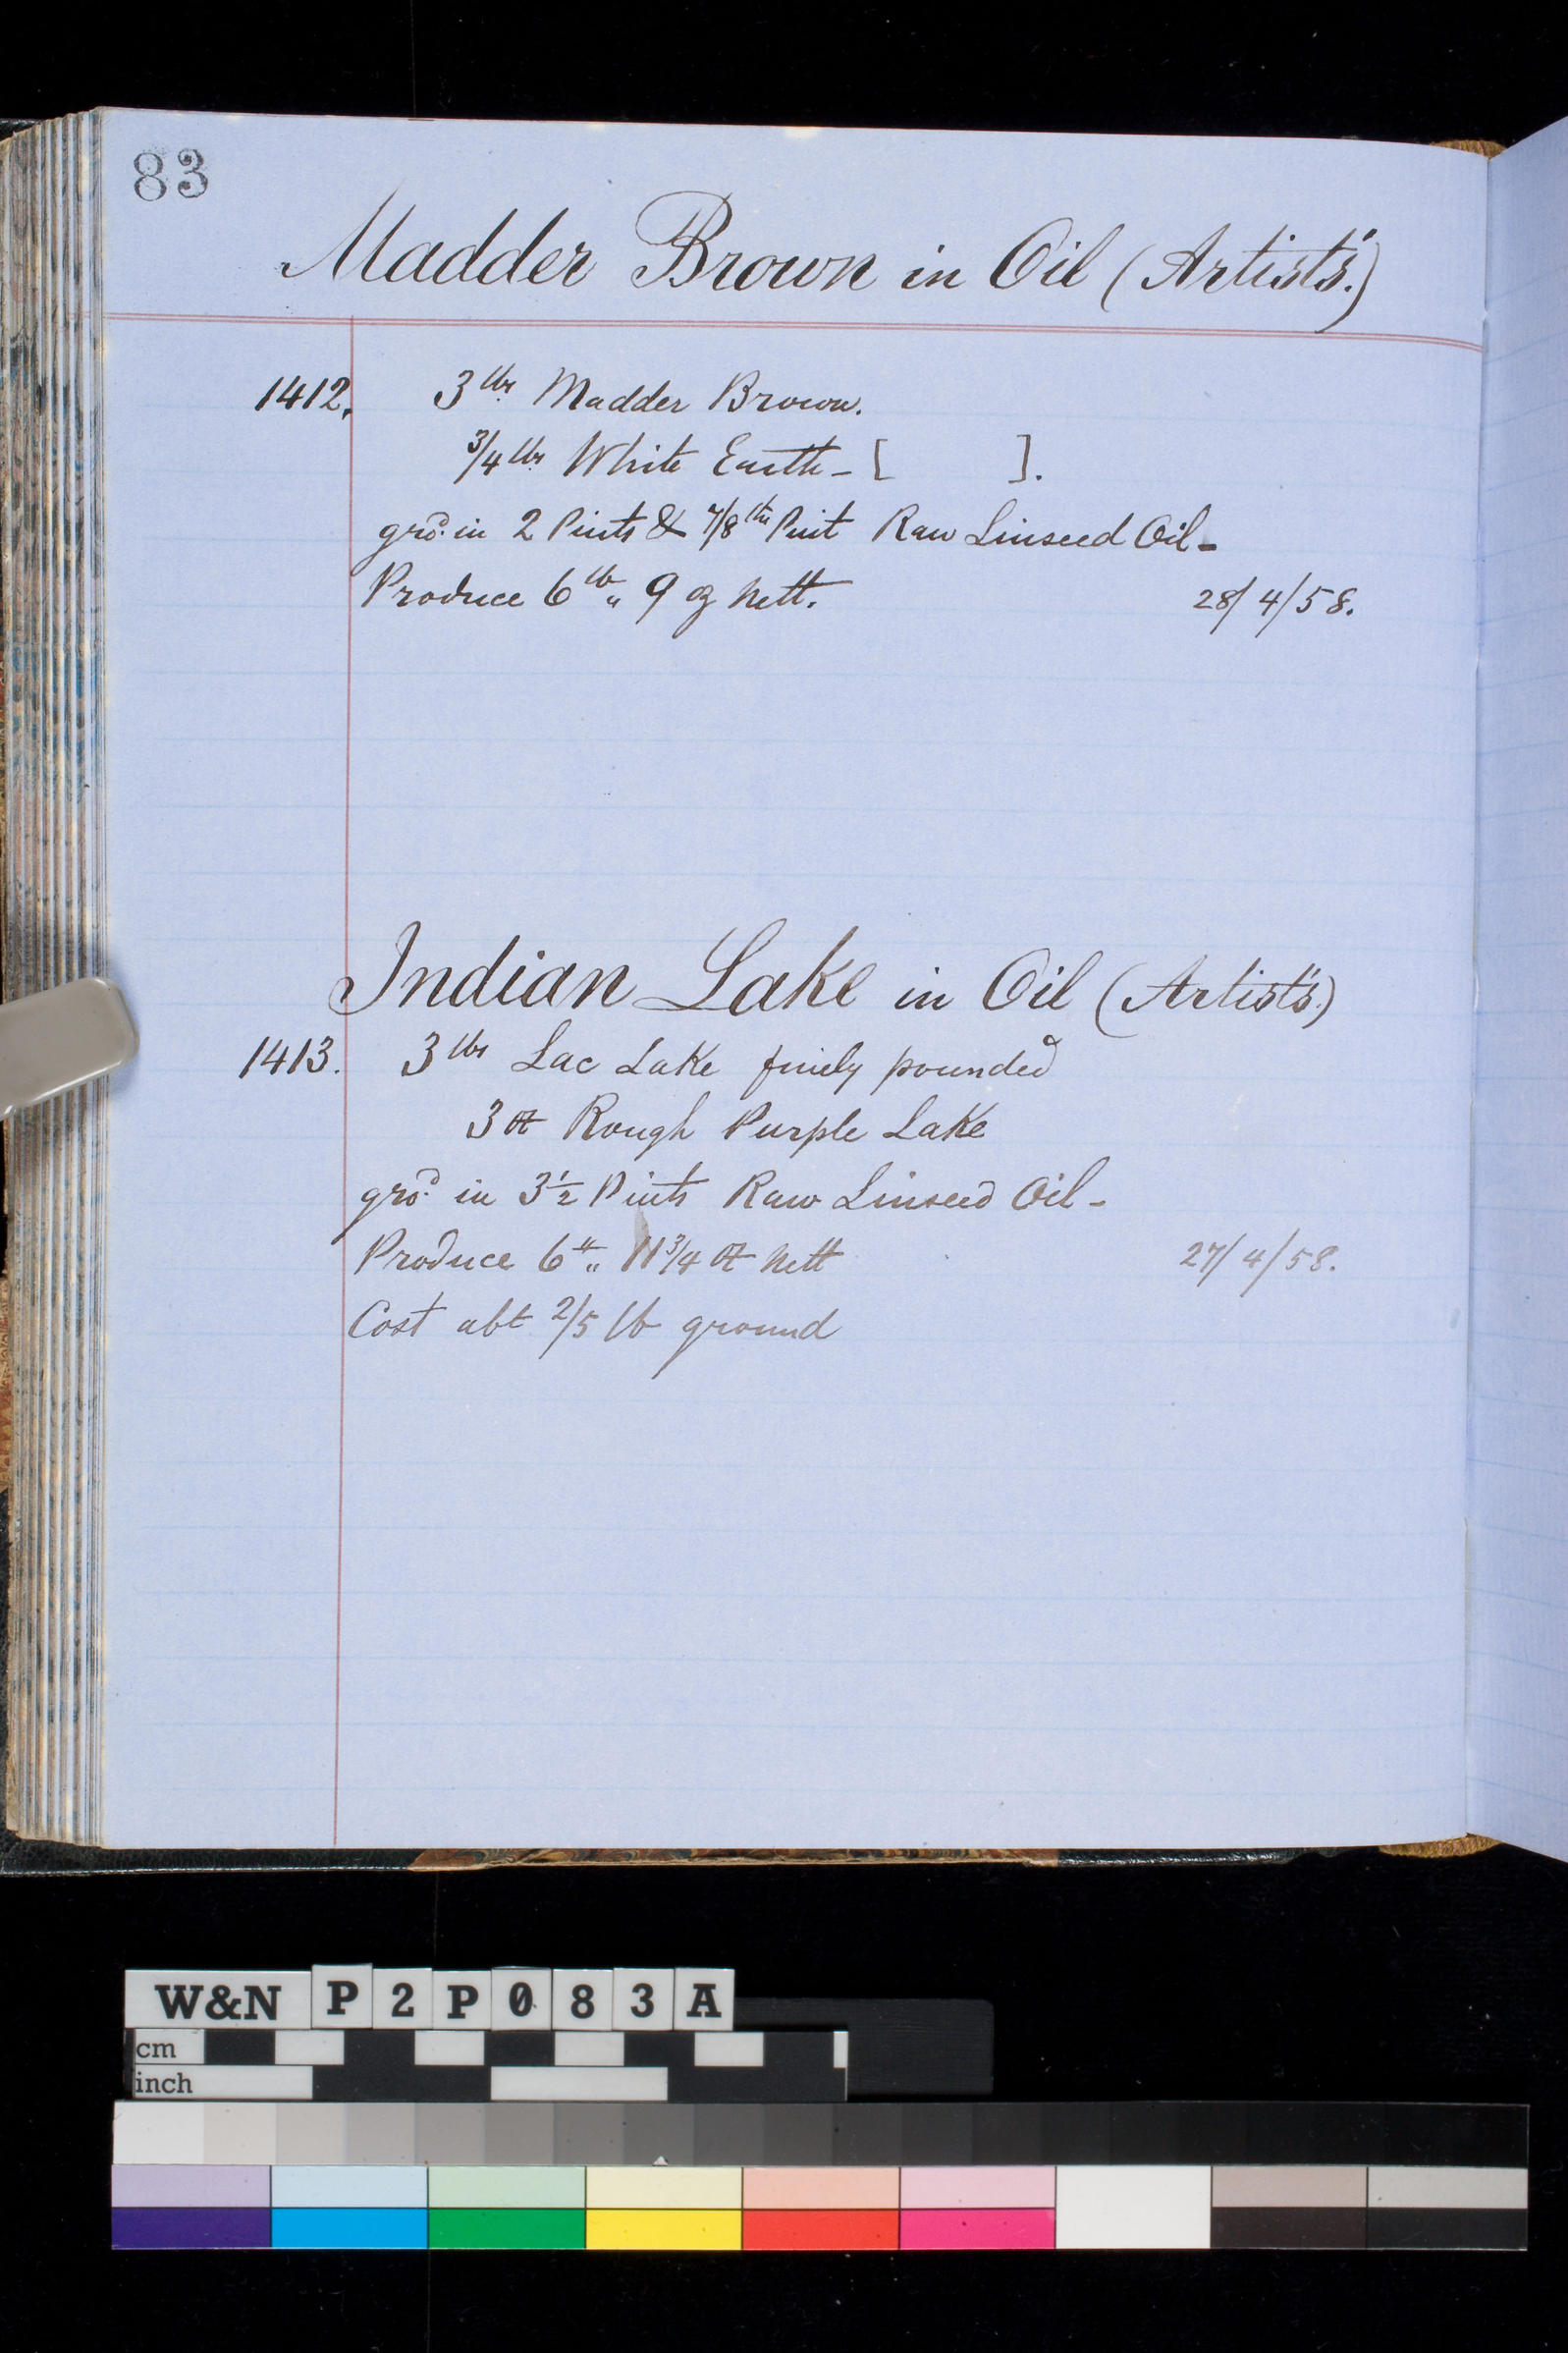 83
Madder Brown in Oil (Artist's.)
1412. 3 lbs Madder Brown.
3/4 lbs White Earth - [ ].
gro.d in 2 Pints & 7/8 ths Pint Raw Linseed Oil -
Produce 6 lb „ 9 oz Nett. 28/4/58.
Indian Lake in Oil (Artist's.)
1413. 3 lbs Lac Lake finely pounded
3 oz Rough Purple Lake
gro.d in 3 1/2 Pints Raw Linseed Oil -
Produce 6 lb „ 11 3/4 oz Nett 27/4/58.
Cost abt 2/5 lb ground
W&N P2P083A
cm
inch